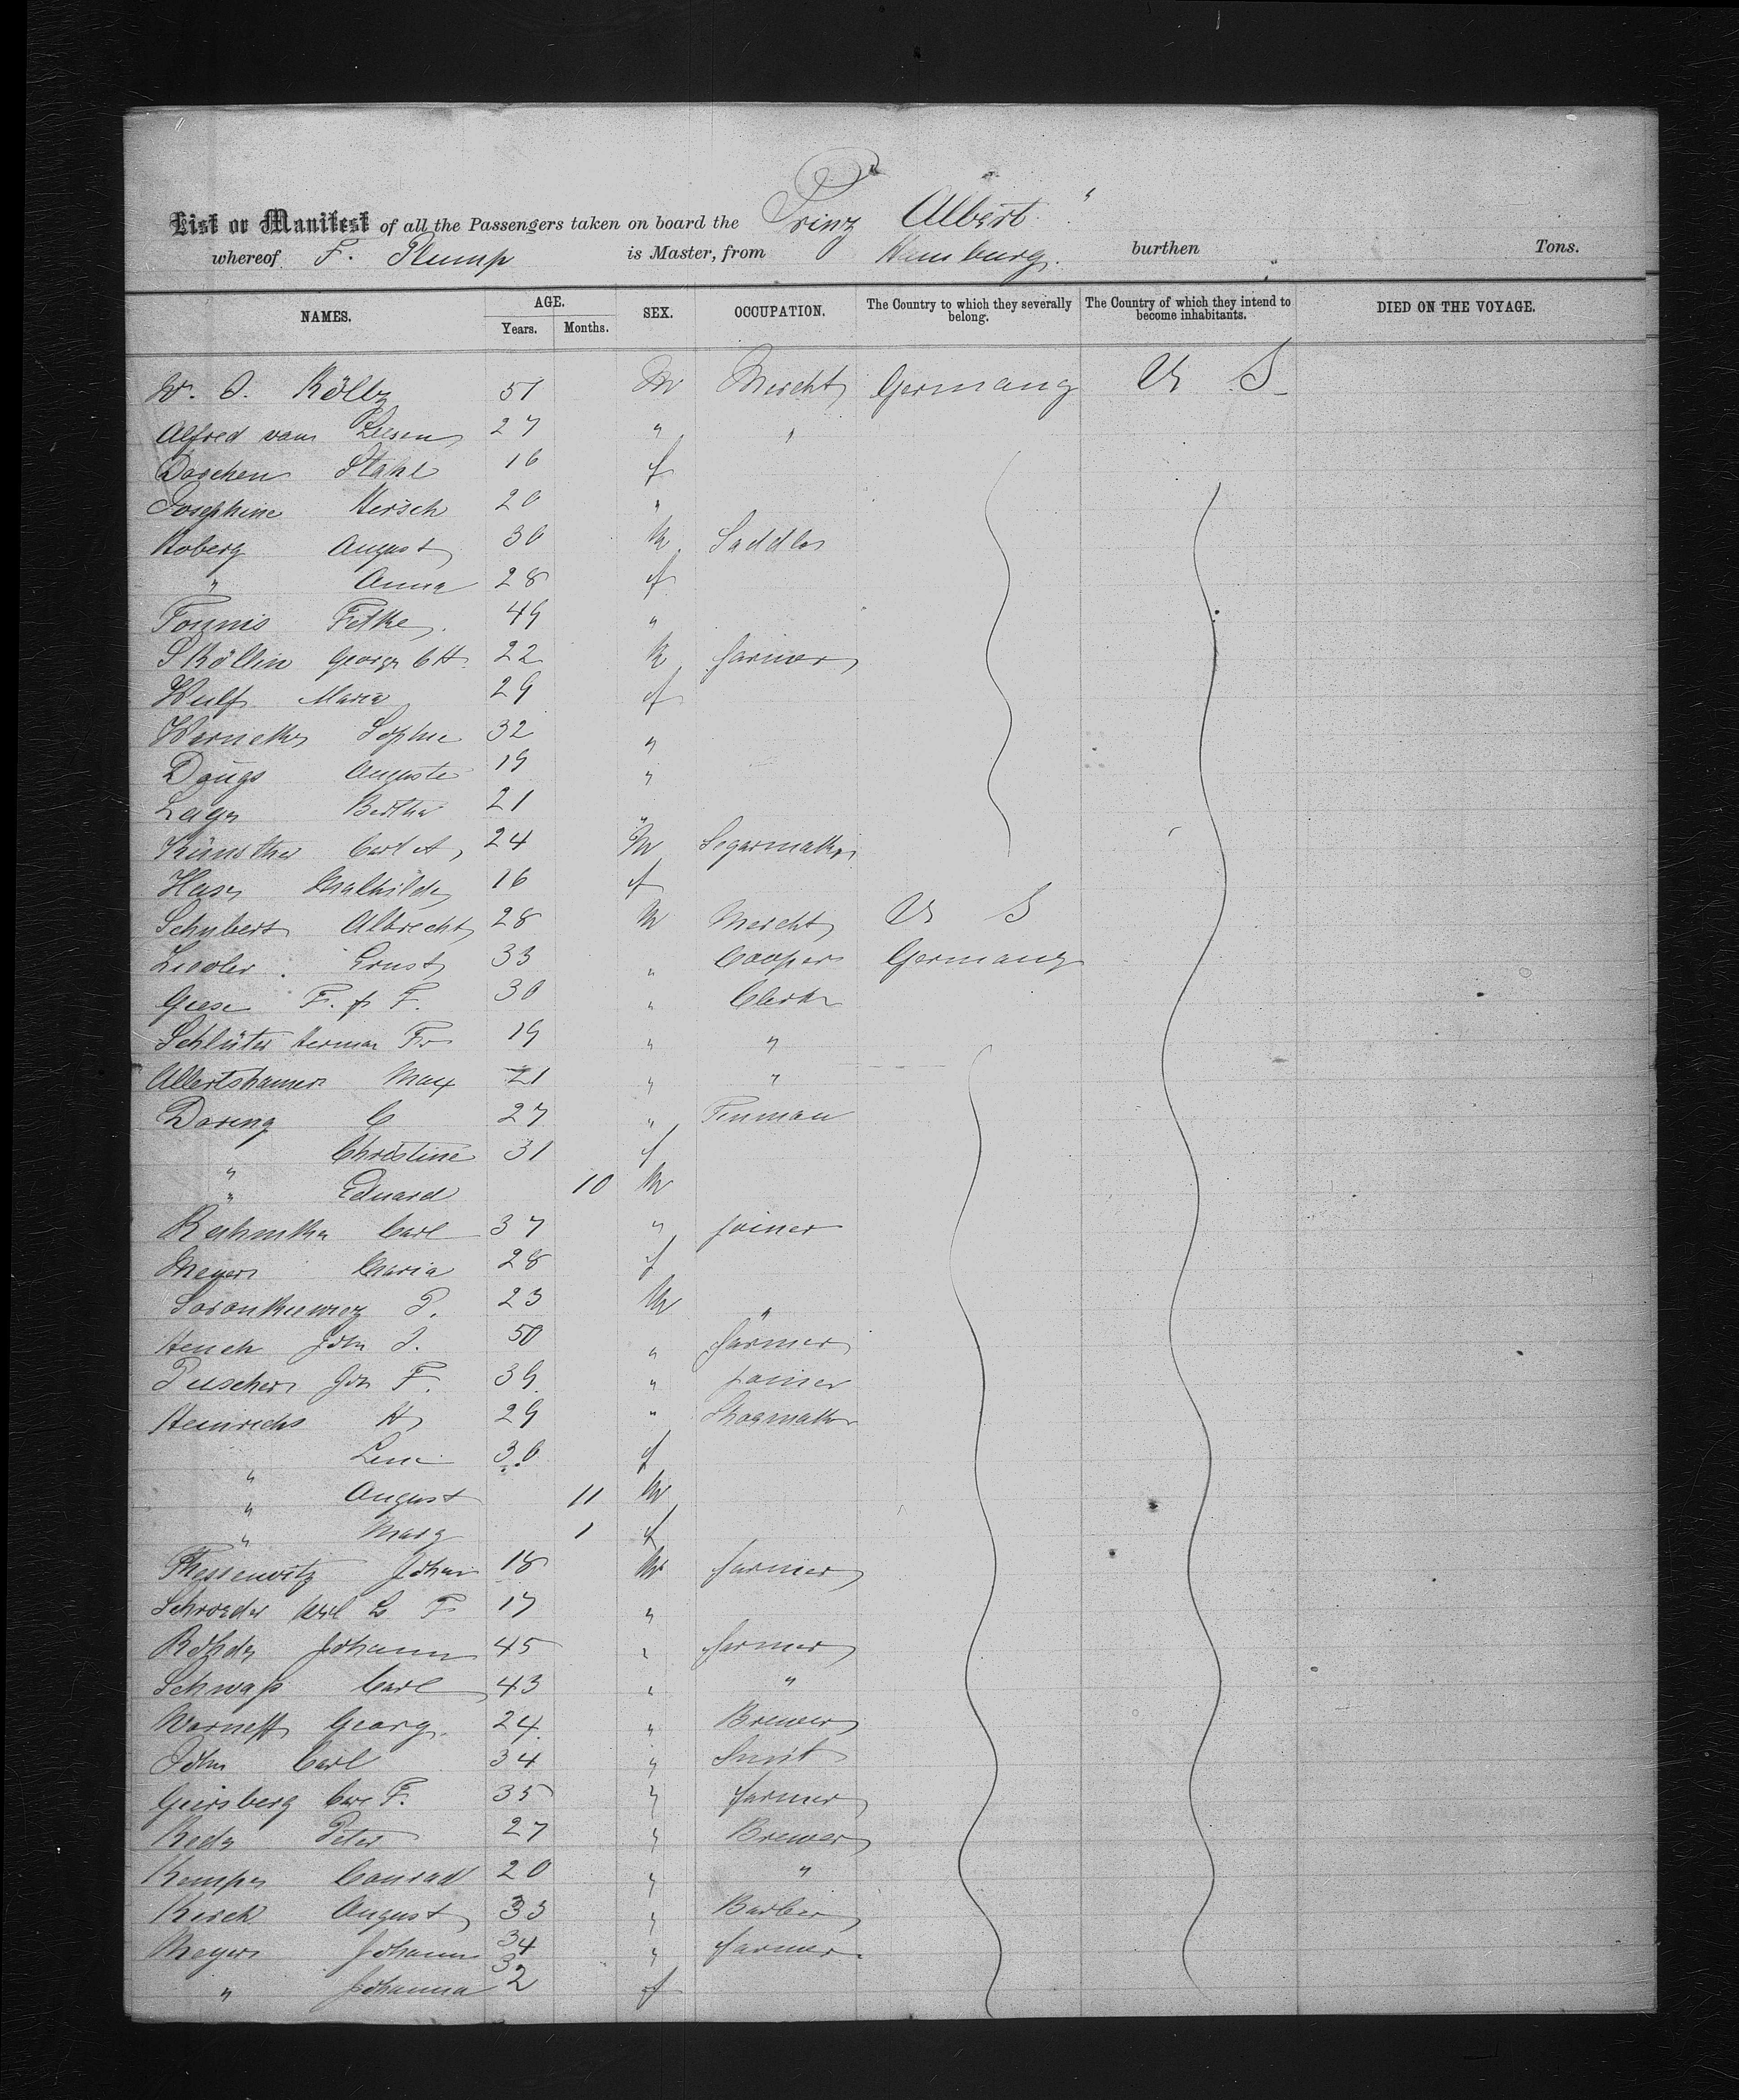 List or Manifest of all the Passengers taken on board the "Prinz Albert"
whereof F. Plump is Master, from Hamburg. burthen Tons.
NAMES. AGE. Years. Months. SEX. OCCUPATION. The Country to which they severally belong. The Country of which they intend to become inhabitants. DIED ON THE VOYAGE.
W. O. Kölbz 51 M Mercht Germany U S
Alfred van 27 " "
Dorchen Stahl 16 f
Josephine Hersch 20 "
Hoberg August 30 M Saddler
" Anna 28 f
Tonnis Fetke 49 "
Köllin George C H 22 M farmer
Wulf Maria 29 f
Warneke Sophie 32 "
Daugs Auguste 19 "
Lage Bertha 21 "
Künstler Carl A, 24 M Segarmaker
Hase Mathilde 16 f
Schubert Albrecht 28 M Mercht U S
Ernst 33 " Cooper Germany
Giese F. f F. 30 " Clerk
Schlüter Herman Fr 19 " "
Albertshamer Max 21 " "
Doring C 27 " Tinman
" Christine 31 f
" Eduard 10 M
Carl 37 " joiner
Meyer Maria 28 f
P. 23 M "
Hench John J. 50 " farmer
Puscher Joh F. 39 " joiner
Heinrichs H 29 " Shoemaker
" Lene 30 f
" August 11 M
" Marg 1 f
Thessenvitz Johan 18 M farmer
Schroeder Carl L F 17 "
Rohde Johann 45 " farmer
Schwass Carl 43 " "
Warneff Georg 24 " Brewer
John Carl 34 " Smit
Giersberg Carl F. 35 " farmer
Rede Peter 27 " Brewer
Kempe Conrad 20 " "
Kirch August 33 " Barber
Meyer Johann 34 " farmer
" Johanna 32 f